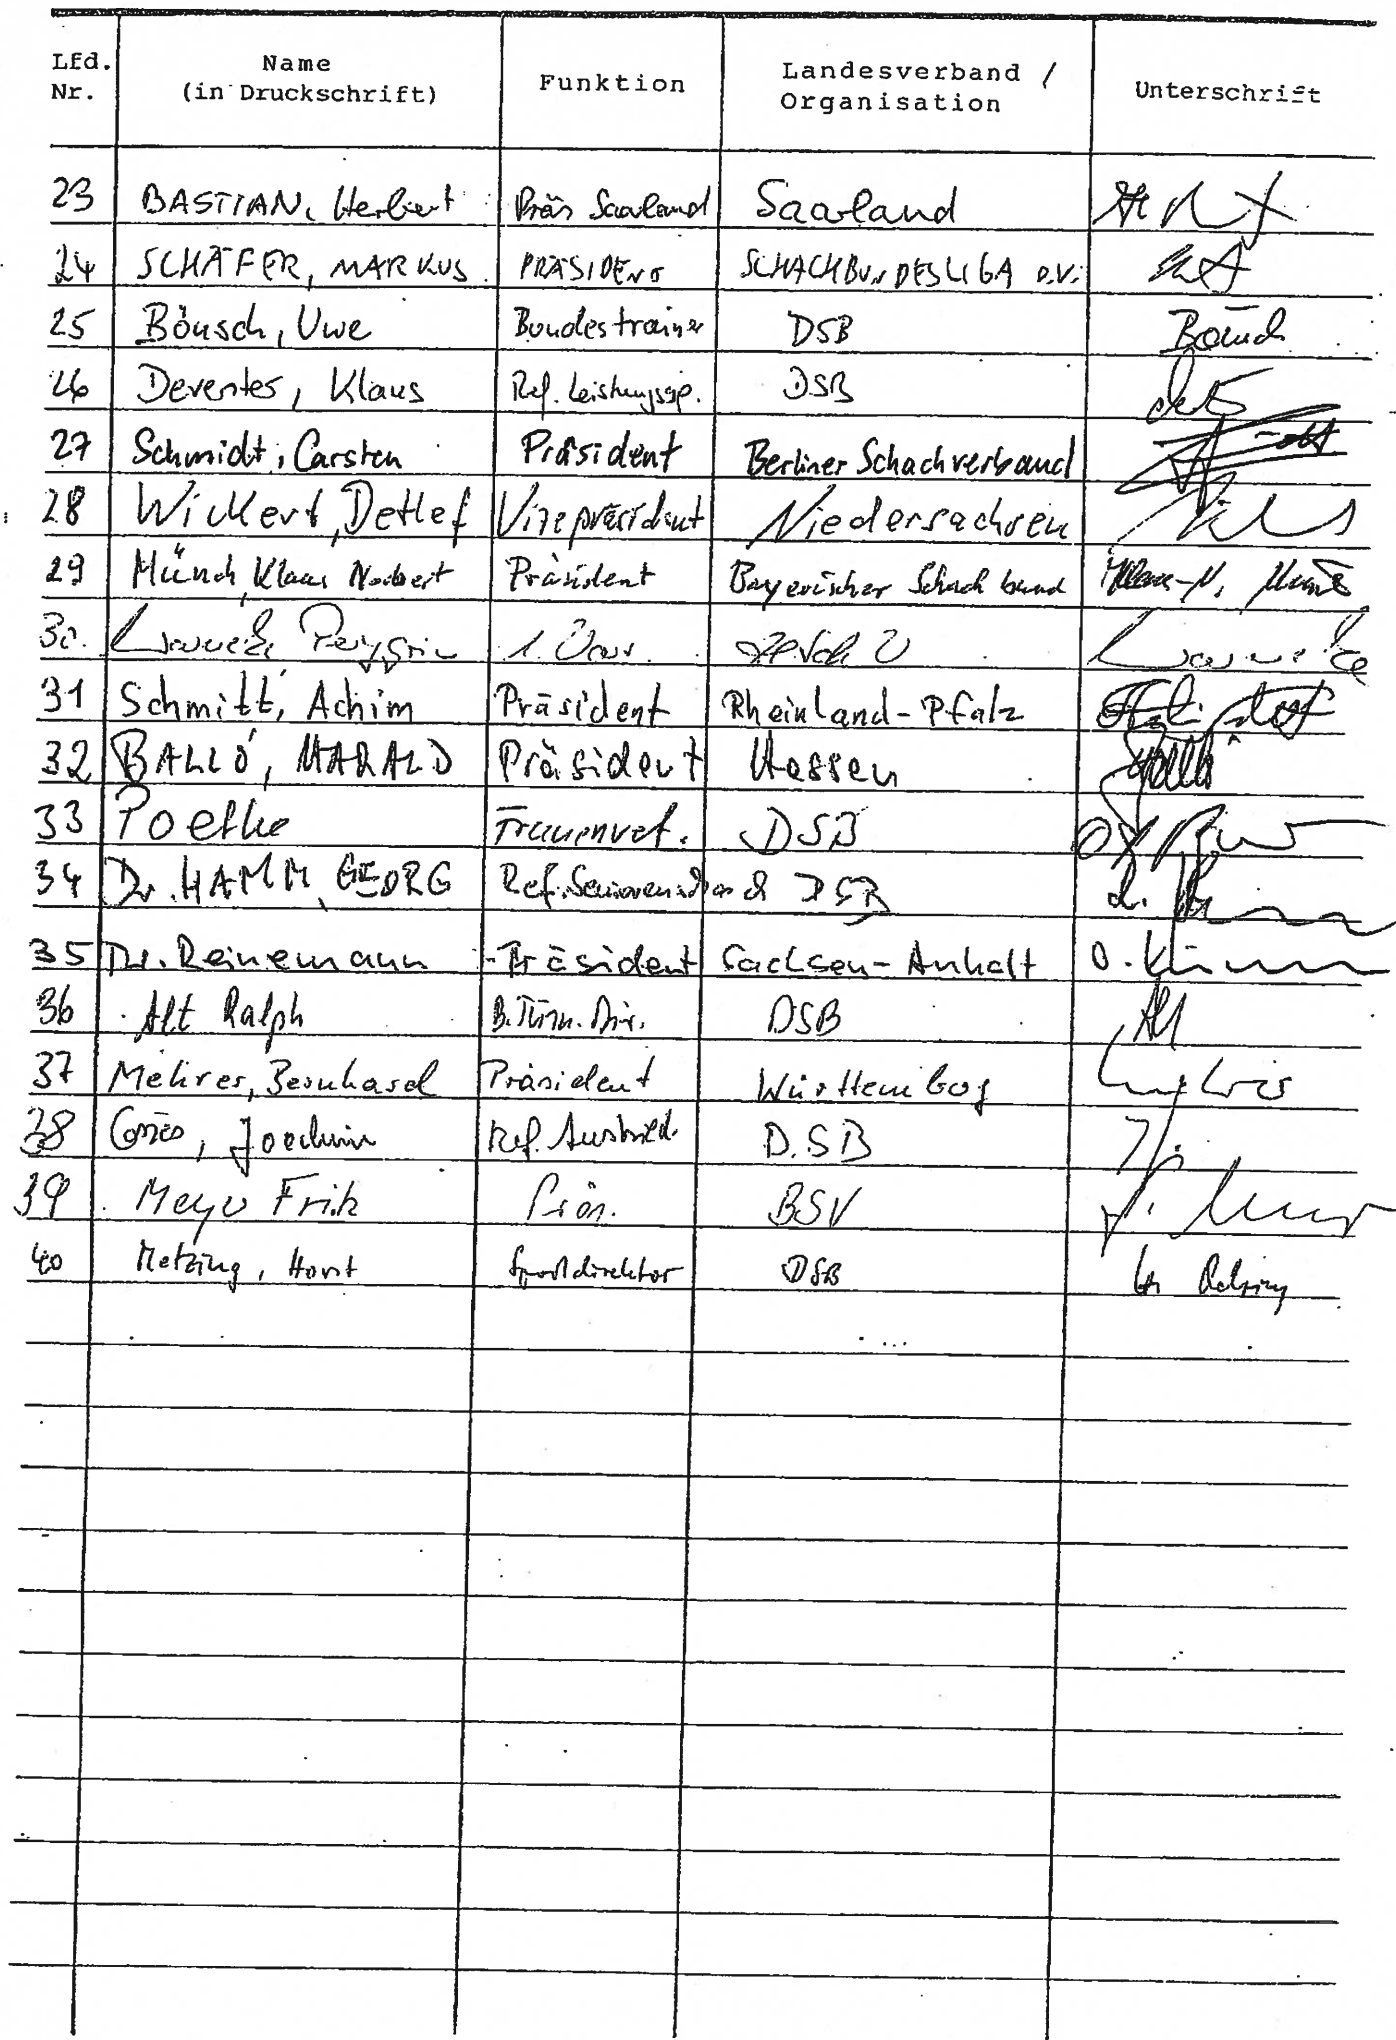 Lfd. Nr. Name (in Druckschrift) Funktion Landesverband / Organisation Unterschrift
23 BASTIAN, Herbert Präs Saarland Saarland
24 SCHÄFER, MARKUS PRÄSIDENT SCHACHBUNDESLIGA e.V.
25 Bönsch, Uwe Bundestrainer DSB Bönsch
26 Deventer, Klaus Ref. Leistungssp. DSB
27 Schmidt, Carsten Präsident Berliner Schachverband
28 Wickert, Detlef Vizepräsident Niedersachsen
29 Münch, Klaus Norbert Präsident Bayerischer Schachbund
30. 1.
31 Schmitt, Achim Präsident Rheinland-Pfalz
32 BALLÓ, HARALD Präsident Hessen
33 Poetke Frauenref. DSB
34 Dr. HAMM, GEORG Ref. Seniorenschach DSB
35 Dr. Reinemann Präsident Sachsen-Anhalt
36 Alt Ralph B. Turn. Dir. DSB Alt
37 Mehrer, Bernhard Präsident Württemberg
38 Joachim Ref. Ausbild. D.SB
39 Meyer Fritz Präs. BSV
40 Metzing, Horst Sportdirektor DSB